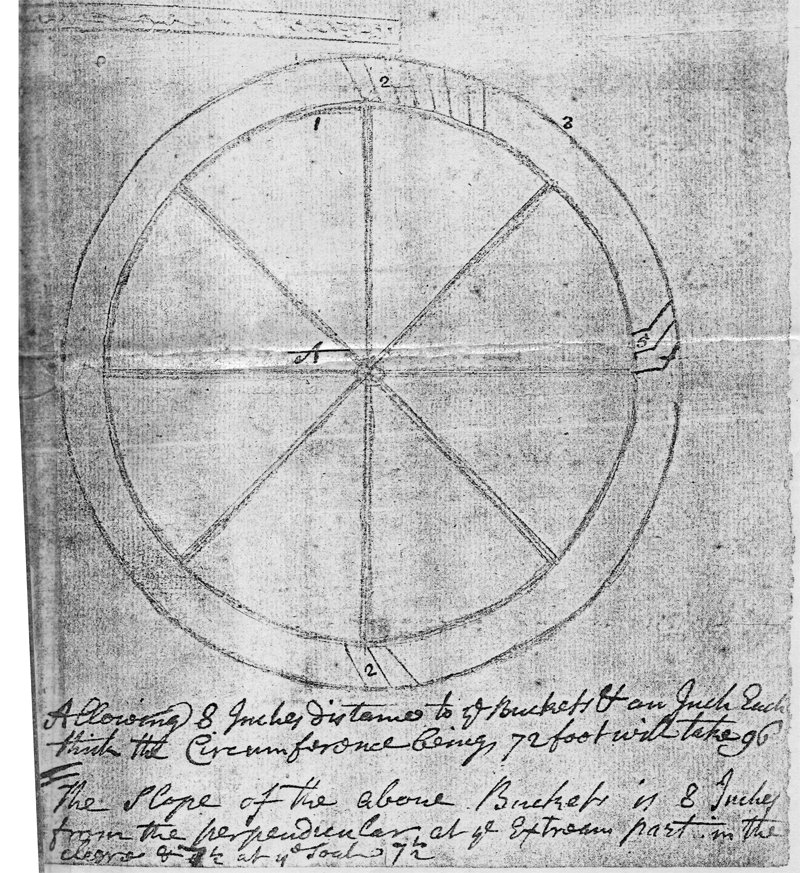 2
1
3
A
5
2
Allowing 8 Inches distance to ye Buckets & an Inch Each
think the Circumference being 72 foot will take 96
The Slope of the above Buckets is 8 Inches
from the perpendicular at ye Extream part in the
& 7½ at ye Soal 7½